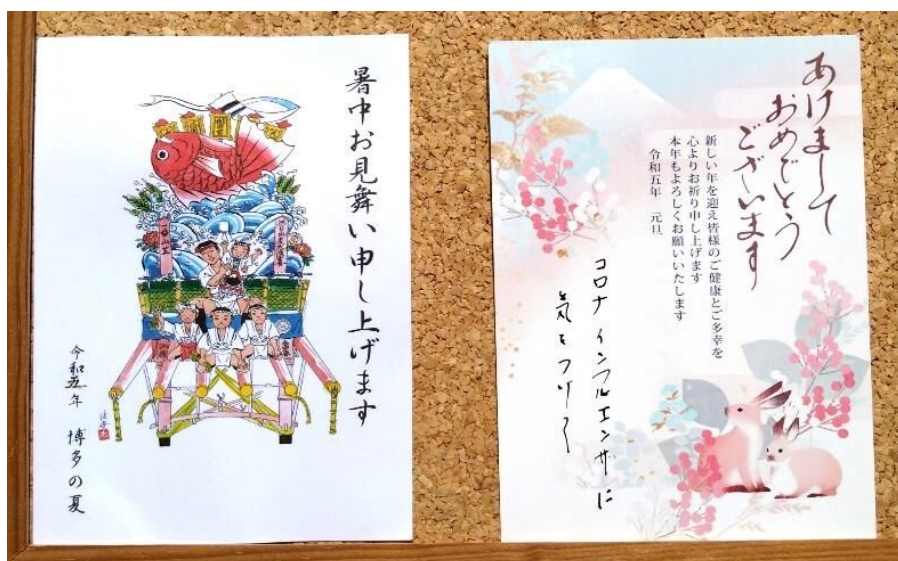 暑中お見舞い申し上げます
令和五年　博多の夏
あけまして
おめでとう
ございます
新しい年を迎え皆様のご健康とご多幸を
心よりお祈り申し上げます
本年もよろしくお願いいたします
令和五年　元旦
コロナ インフルエンザに
気をつけて